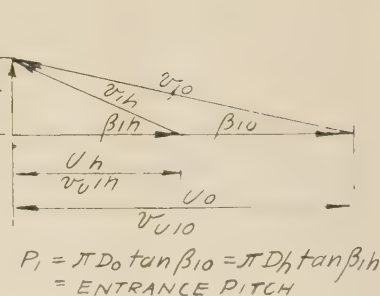 v1h
v10
β1h
β10
Uh
vU1h
U0
vU10
P1 = πD0 tan β10 = πDh tan β1h
= ENTRANCE PITCH